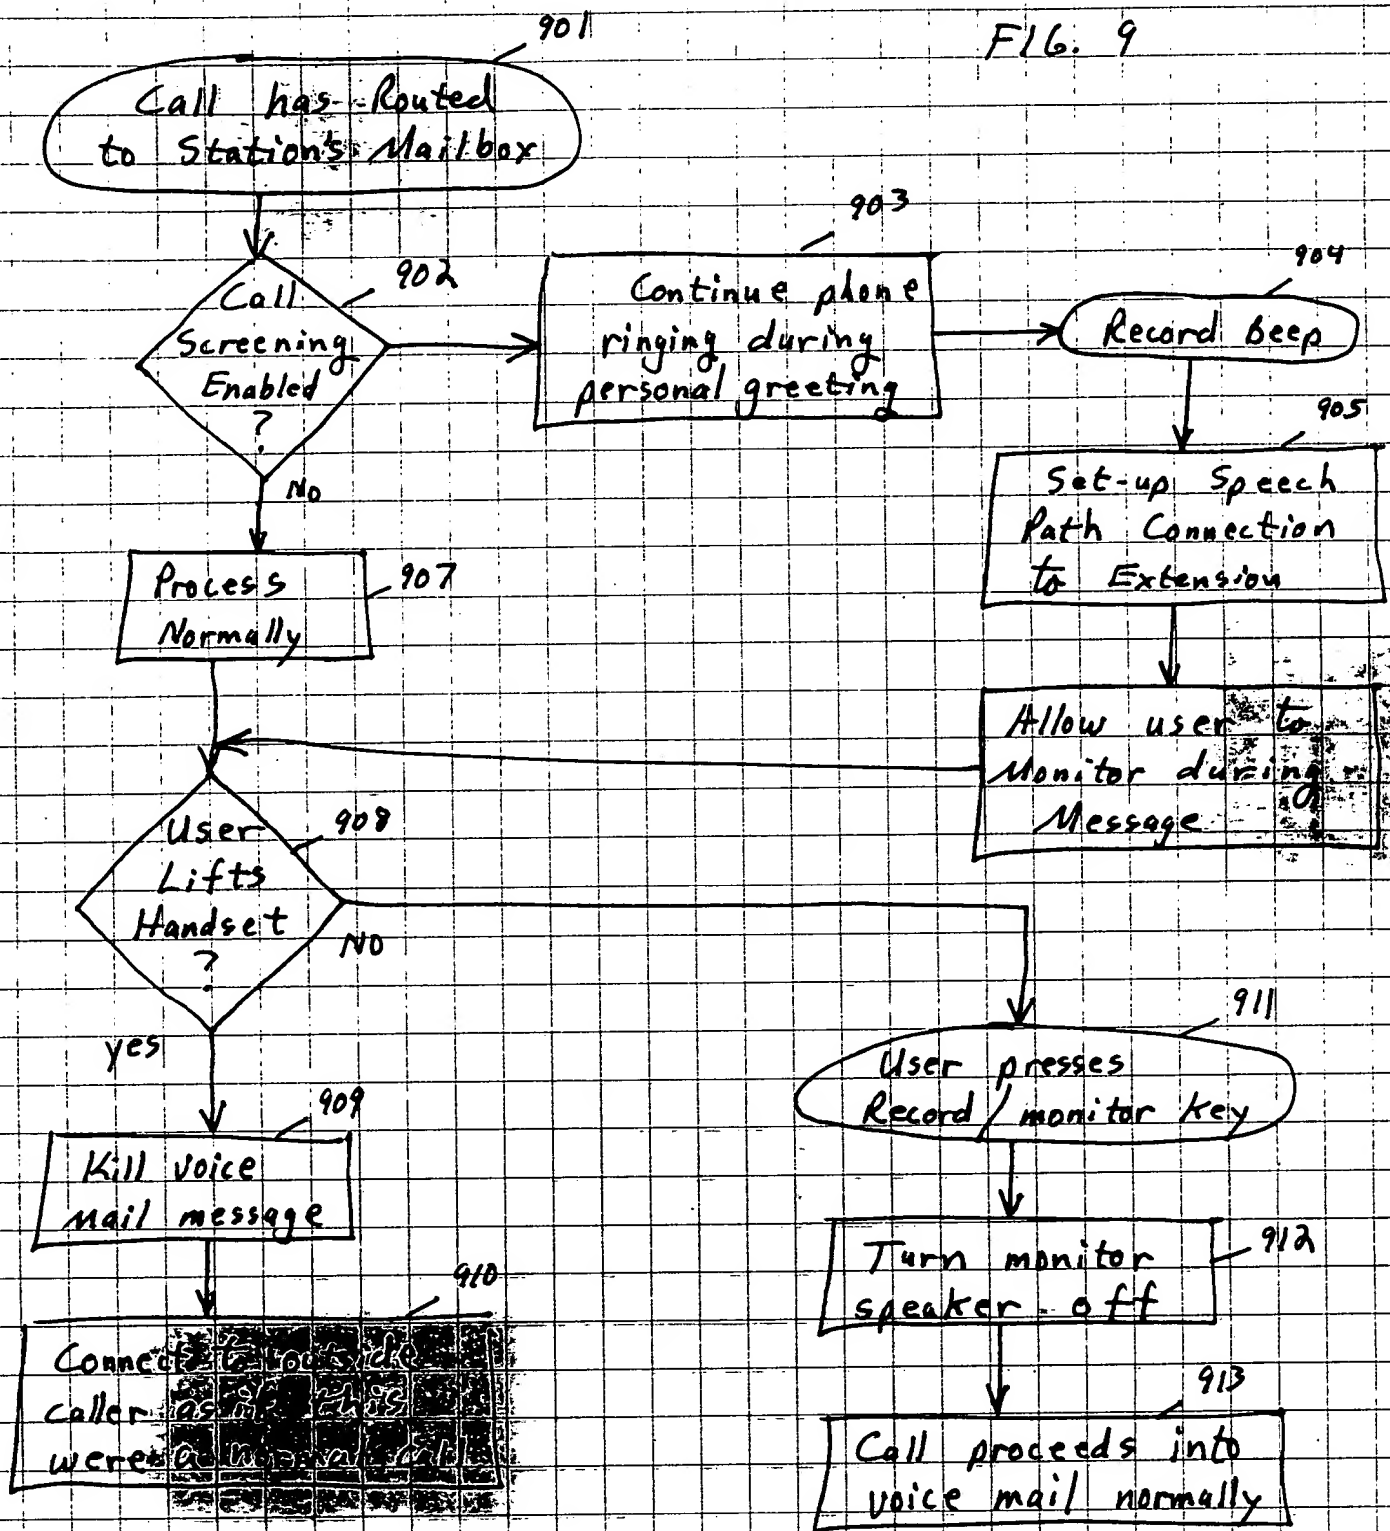 FIG. 9
901
Call has Routed
to Station's Mailbox
902
Call
Screening
Enabled
?
No
903
Continue phone
ringing during
personal greeting
904
Record Beep
905
Set-up Speech
Path Connection
to Extension
Allow user to
Monitor during
Message
907
Process
Normally
908
User
Lifts
Handset
?
NO
yes
909
Kill voice
Mail message
910
Connect to outside
caller as if this
were a normal call
911
User presses
Record / monitor key
912
Turn monitor
speaker off
913
Call proceeds into
voice mail normally